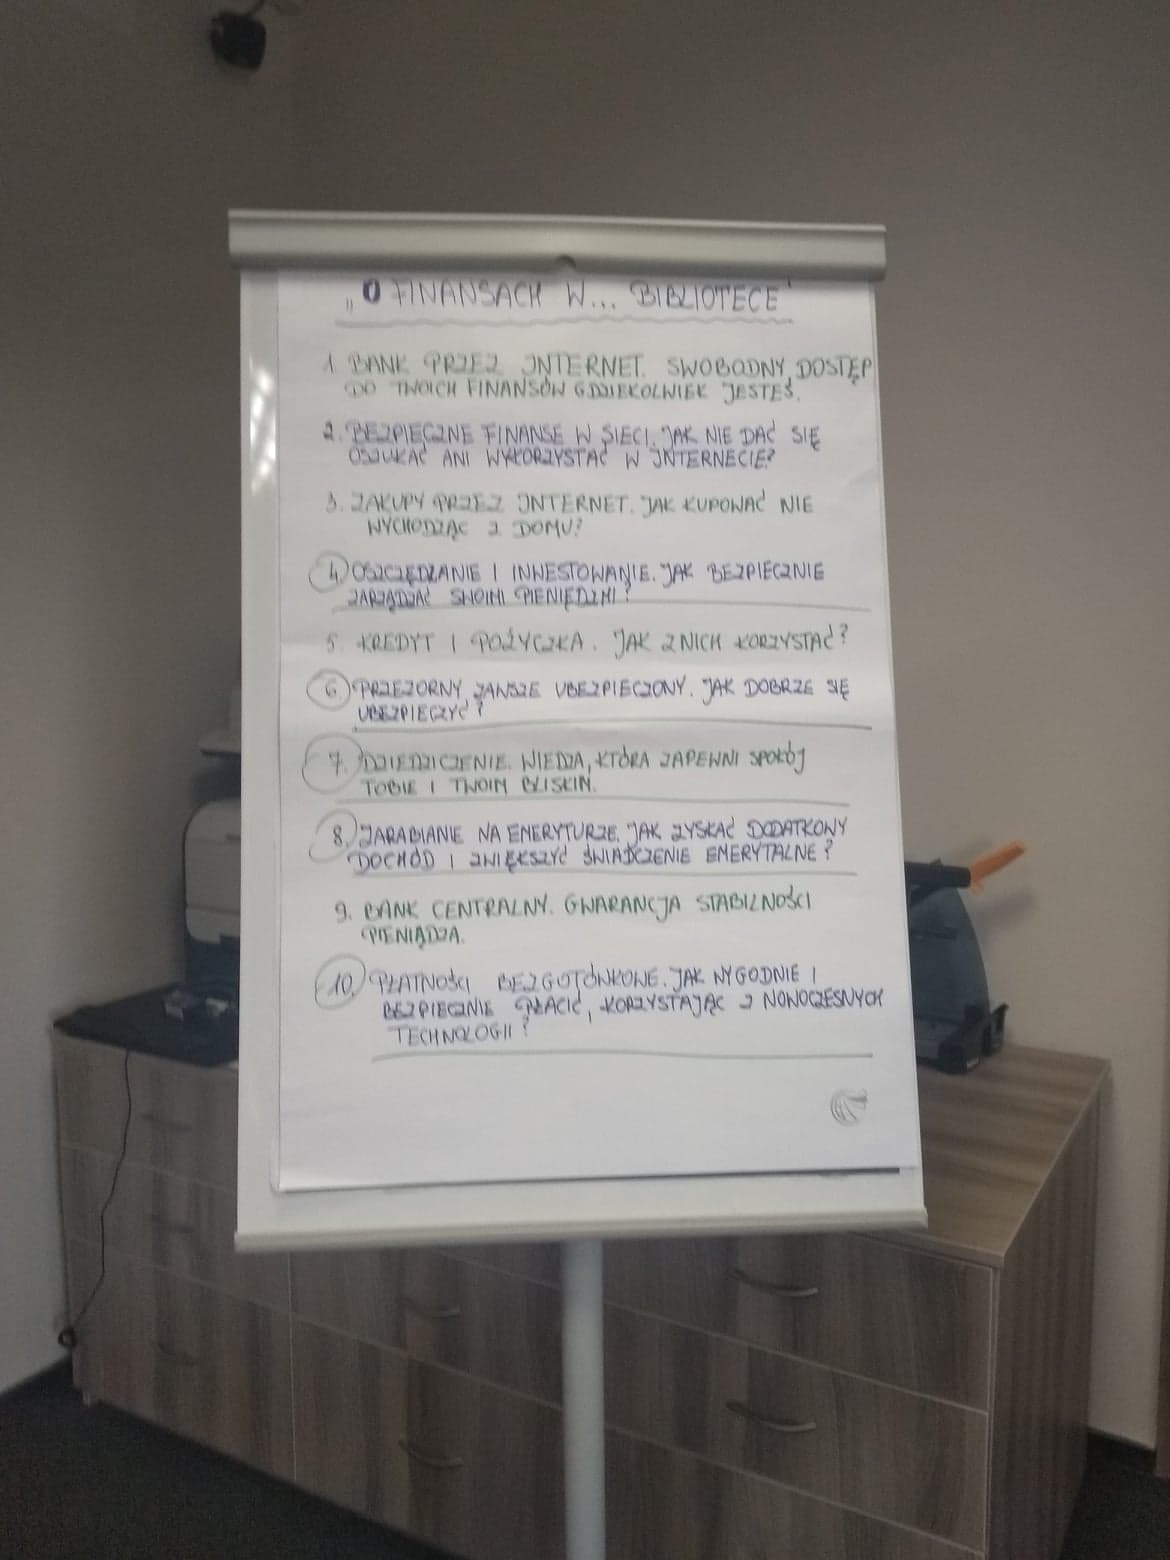 „O FINANSACH W... BIBLIOTECE"
1. BANK PRZEZ INTERNET. SWOBODNY DOSTĘP
DO TWOICH FINANSÓW GDZIEKOLWIEK JESTEŚ.
2. BEZPIECZNE FINANSE W SIECI. JAK NIE DAĆ SIĘ
OSZUKAĆ ANI WYKORZYSTAĆ W INTERNECIE?
3. ZAKUPY PRZEZ INTERNET. JAK KUPOWAĆ NIE
WYCHODZĄC Z DOMU?
4. OSZCZĘDZANIE I INWESTOWANIE. JAK BEZPIECZNIE
ZARZĄDZAĆ SWOIMI PIENIĘDZMI?
5. KREDYT I POŻYCZKA. JAK Z NICH KORZYSTAĆ?
6. PRZEZORNY ZAWSZE UBEZPIECZONY. JAK DOBRZE SIĘ
UBEZPIECZYĆ?
7. DZIEDZICZENIE. WIEDZA, KTÓRA ZAPEWNI SPOKÓJ
TOBIE I TWOIM BLISKIM.
8. ZARABIANIE NA EMERYTURZE. JAK ZYSKAĆ DODATKOWY
DOCHÓD I ZWIĘKSZYĆ ŚWIADCZENIE EMERYTALNE?
9. BANK CENTRALNY. GWARANCJA STABILNOŚCI
PIENIĄDZA.
10. PŁATNOŚCI BEZGOTÓWKOWE. JAK WYGODNIE I
BEZPIECZNIE PŁACIĆ, KORZYSTAJĄC Z NOWOCZESNYCH
TECHNOLOGII?